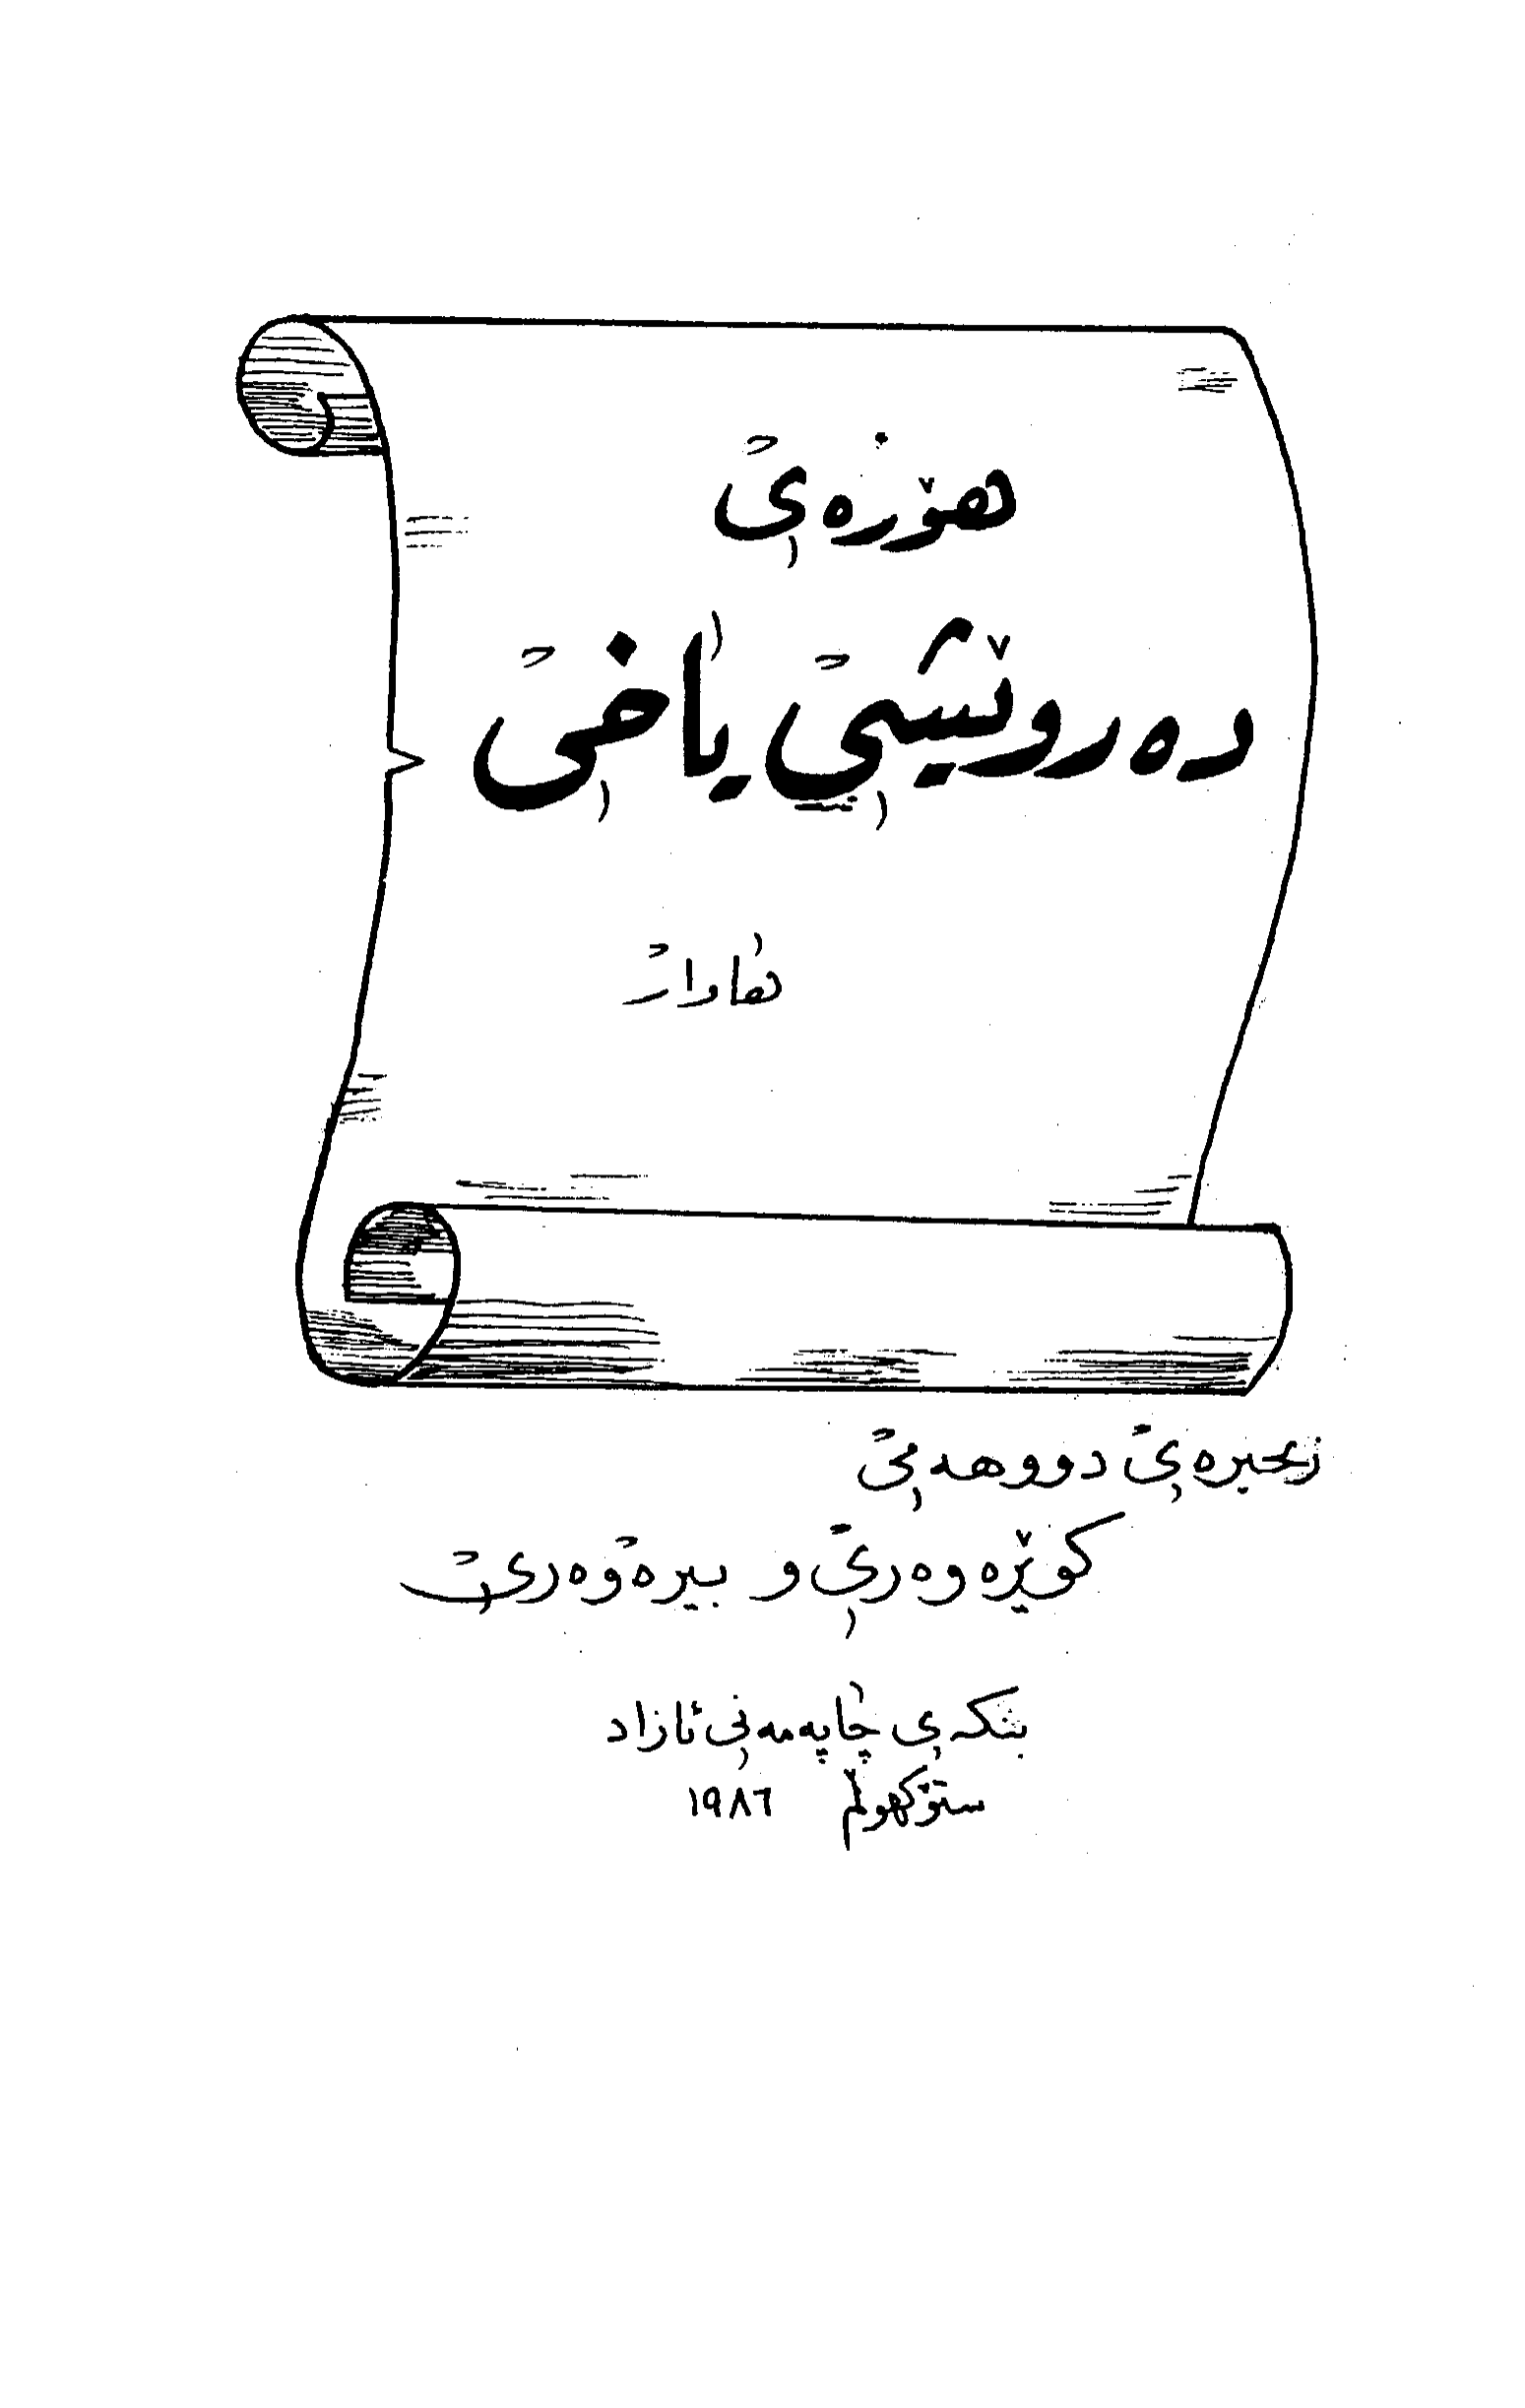 هۆزەی
دەروێشی یاخی
هاوار
زنجیرەی دووهەمی
کوێرەوەری و بیرەوەری
بنکەی چاپەمەنی ئازاد
ستۆکهۆڵم ١٩٨٦